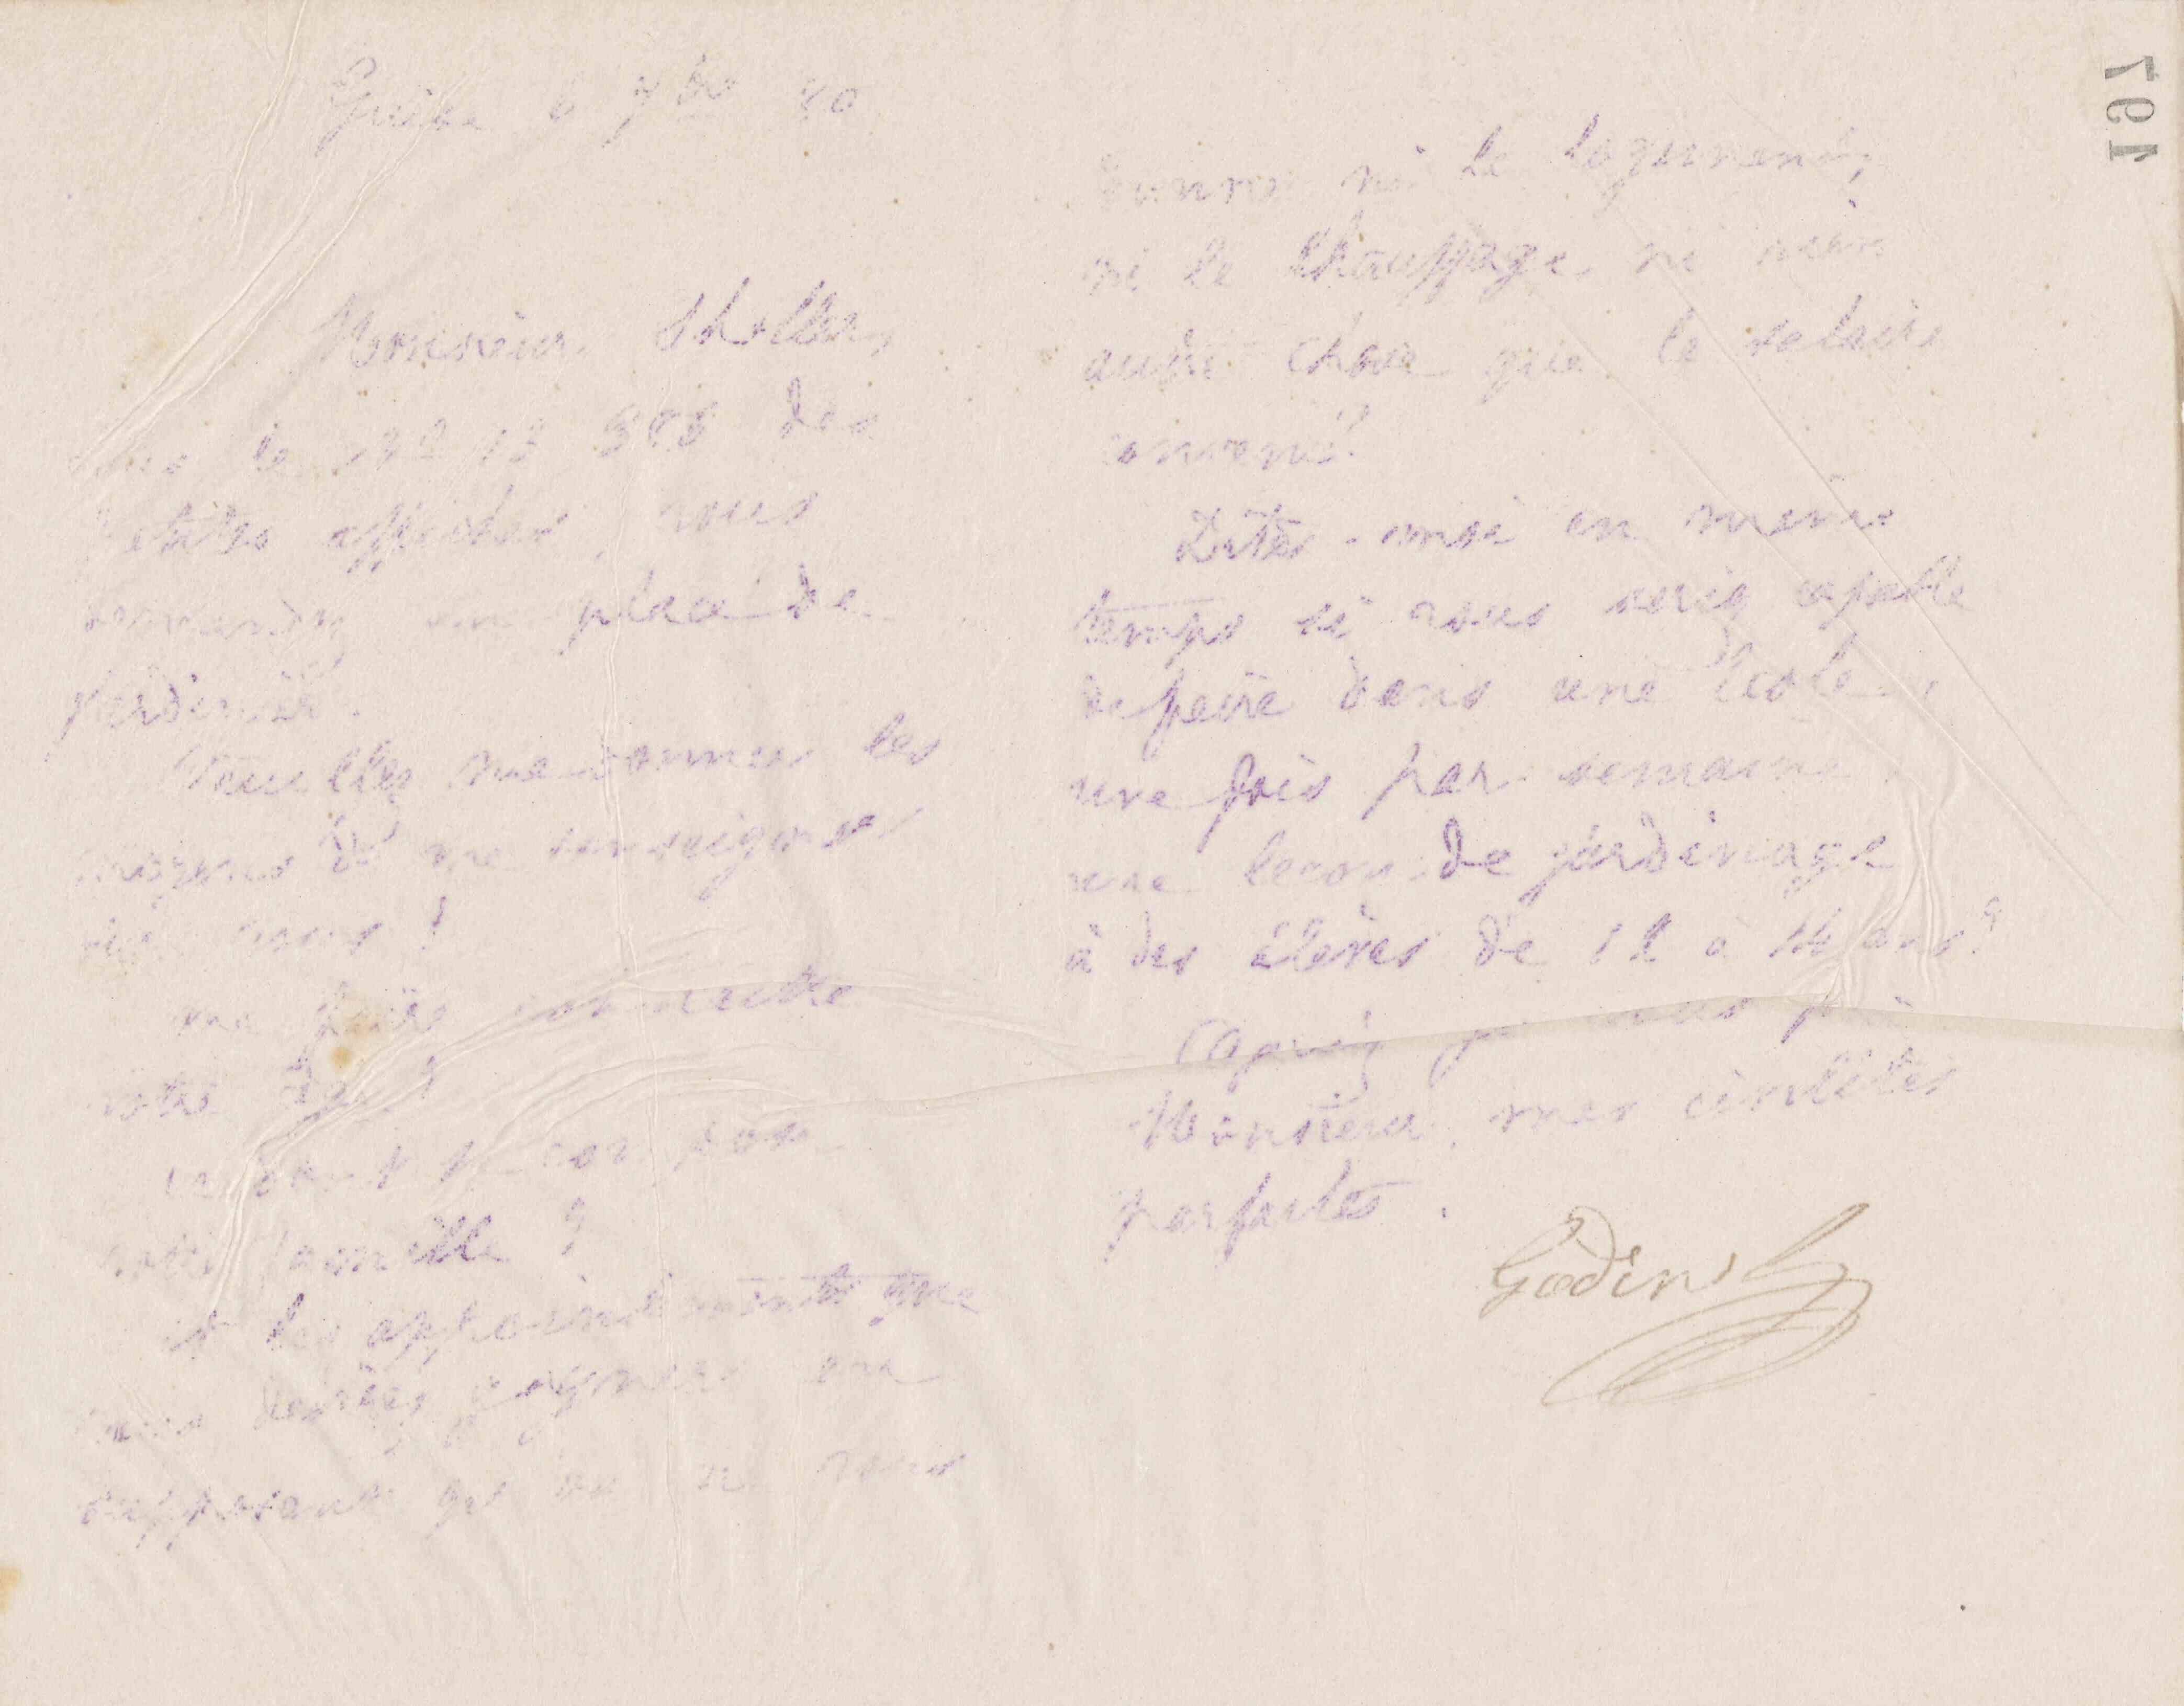 Guise 6 7bre 80
Monsieur
le No 13 585 des
petites affiches, vous
demandez une place de
jardinier.
Veuillez me donner les
moyens de me renseigner
sur vous !
me faire connaître
votre âge ?
ce dont se compose
votre famille ?
et les appointements que
vous désirez gagner en
supposant qu'on ne vous
donne ni le logement,
ni le chauffage ni rien
autre chose que le salaire
convenu ?
Dites-moi en même
temps si vous seriez capable
de faire dans une école,
une fois par semaine
une leçon de jardinage
à des élèves de 12 à 14 ans ?
Agréez je vous prie
Monsieur, mes civilités
parfaites.
Godin
197